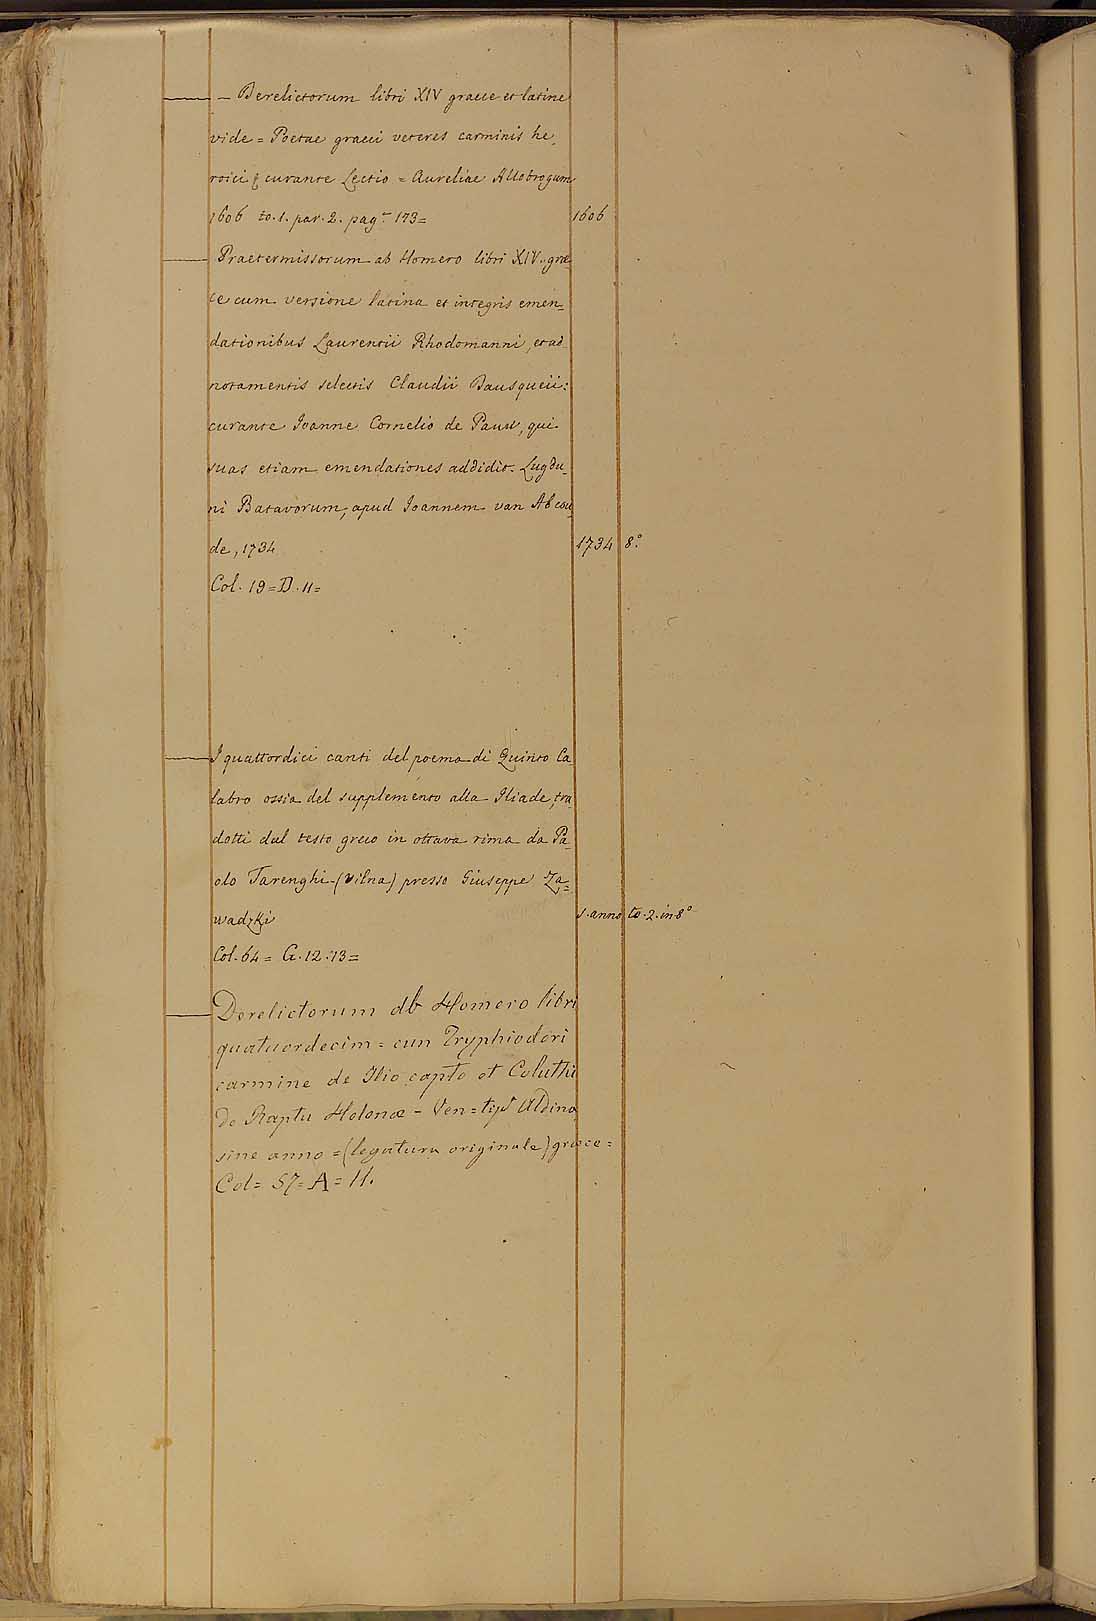 – Derelictorum libri XIV graece et latine
vide = Poetae graeci veteres carminis he,
roici & curante Lectio = Aureliae Allobrogum
1606 to. 1. par. 2. pag. 173= 1606
Praetermissorum ab Homero libri XIV. græ-
ce cum versione latina et integris emen=
dationibus Laurentii Rhodomanni, et ad
notamentis selectis Claudii Dausqueii:
curante Ioanne Cornelio de Pauw, qui
suas etiam emendationes addidit. Lugdu=
ni Batavorum, apud Ioannem van Abcou
de, 1734 1734 8.°
Col. 19 = D. 11=
I quattordici canti del poema di Quinto Ca
labro ossia del supplemento alla Iliade, tra
dotti dal testo greco in ottava rima da Pa
olo Tarenghi (Vilna) presso Giuseppe Za=
wadzki s. anno to. 2. in 8°
Col. 64 = G. 12. 13=
Derelictorum ab Homero libri
quatuordecim = cun Tryphiodori
carmine de Ilio capto et Coluthi
de Raptu Helenæ – Ven = tijs Aldina
sine anno = (legatura originale) græce =
Col = 57 = A = 11.